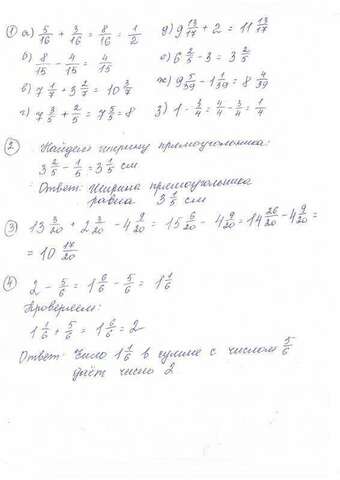 1 а) 5/16 + 3/16 = 8/16 = 1/2
д) 9 13/17 + 2 = 11 13/17
б) 8/15 − 4/15 = 4/15
е) 6 2/5 − 3 = 3 2/5
в) 7 1/7 + 3 2/7 = 10 3/7
ж) 9 5/39 − 1 1/39 = 8 4/39
г) 7 3/5 + 2/5 = 7 5/5 = 8
з) 1 − 3/4 = 4/4 − 3/4 = 1/4
2 Найдём ширину прямоугольника:
3 2/5 − 1/5 = 3 1/5 см
Ответ: Ширина прямоугольника
равна 3 1/5 см
3 13 3/20 + 2 3/20 − 4 9/20 = 15 6/20 − 4 9/20 = 14 26/20 − 4 9/20 =
= 10 17/20
4 2 − 5/6 = 1 6/6 − 5/6 = 1 1/6
Проверяем:
1 1/6 + 5/6 = 1 6/6 = 2
Ответ: Число 1 1/6 в сумме с числом 5/6
даёт число 2